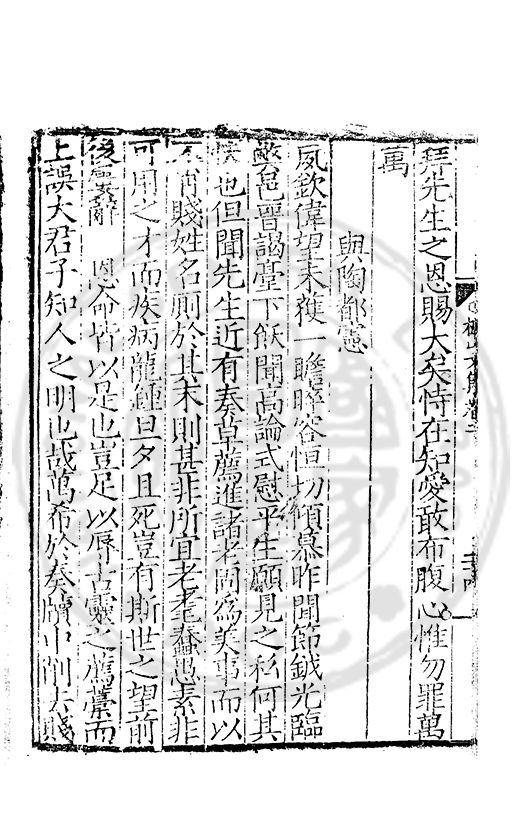 拜先生之恩賜大矣恃在知愛敢布腹心惟勿罪萬
萬
與陶都憲
夙欽偉望未獲一瞻睟容恒切傾慕昨聞節鉞光臨
敝邑曾謁臺下飫聞高論式慰平生願見之私何其
也但聞先生近有奏草薦進諸老誠為美事而以
不肖賤姓名廁於其末則甚非所宜老耄蠢愚素非
可用之才而疾病龍鍾旦夕且死豈有斯世之望前
後辭 恩命皆以是也豈足以辱古靈之薦藁而
上誤大君子知人之明也哉萬希於奏牘中削去賤